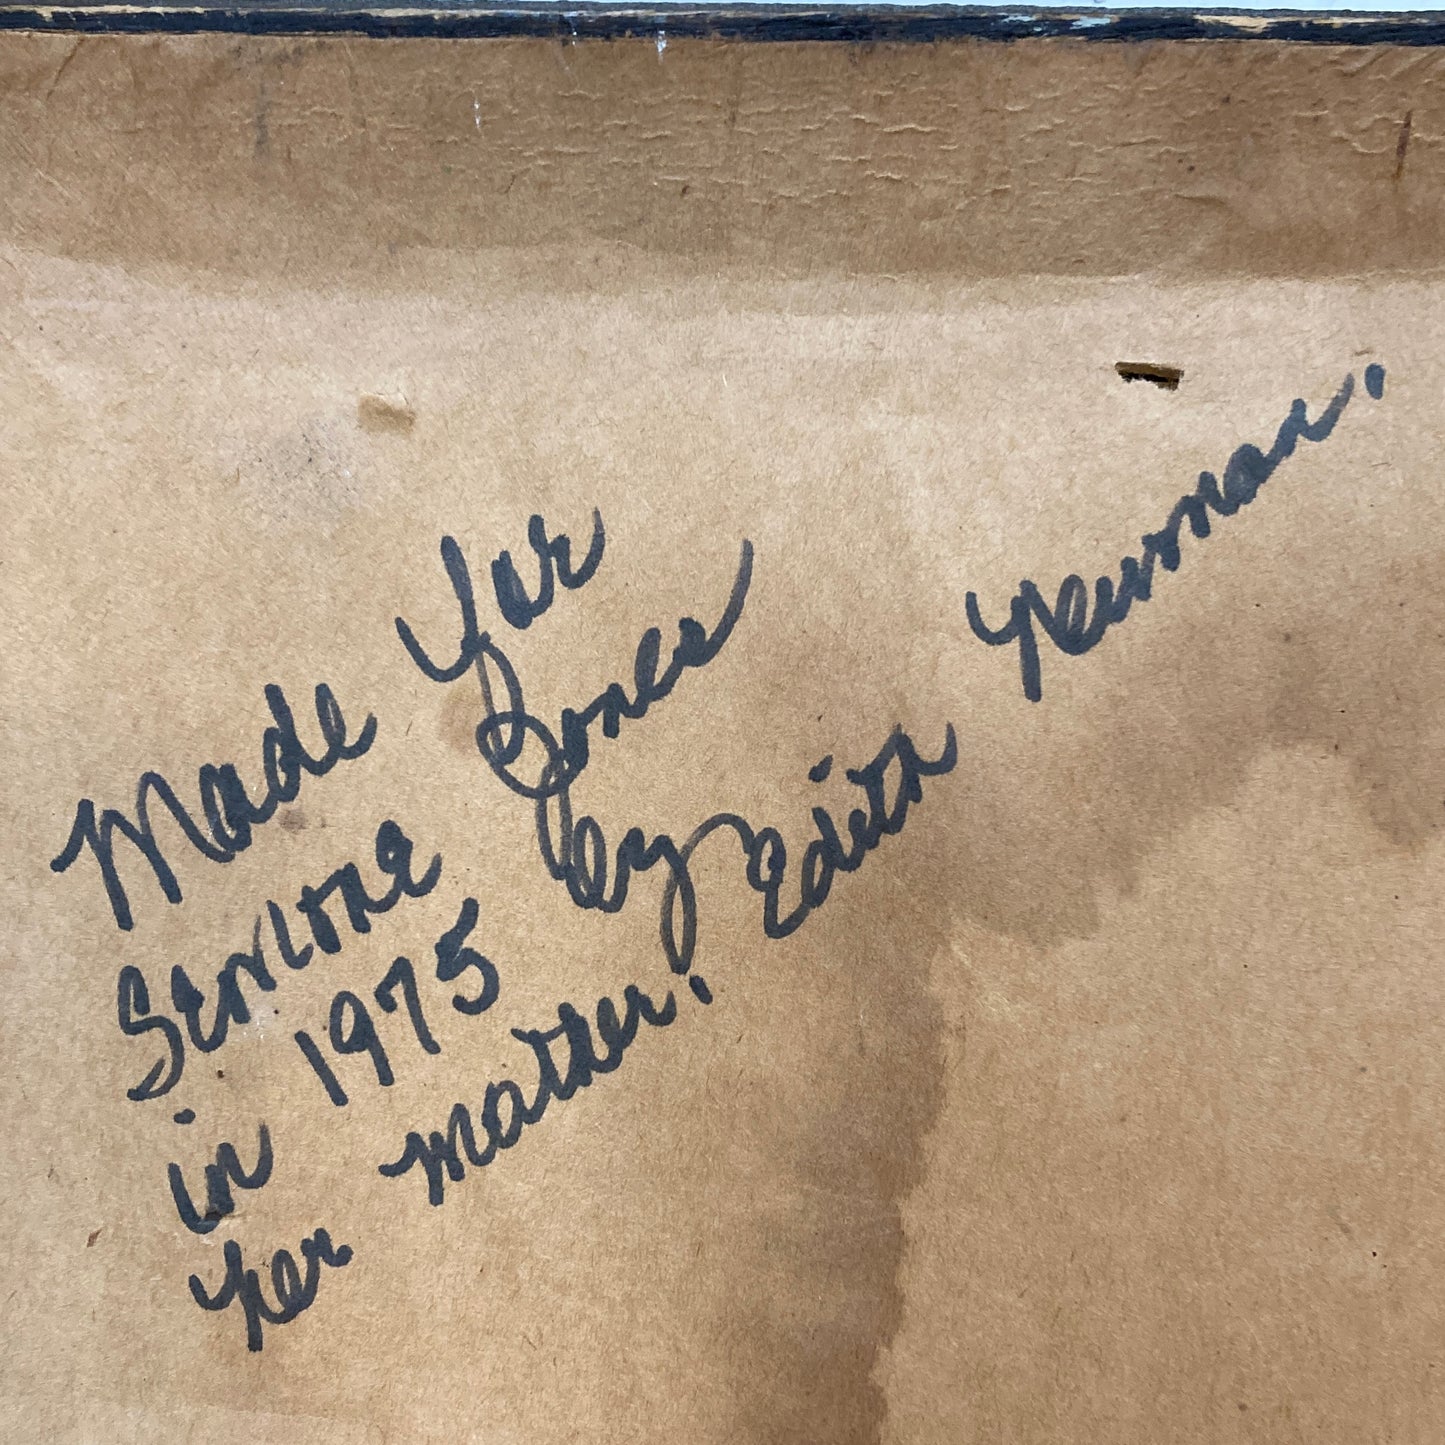 Made for
Semione Jones
in 1975 by Edith Newman.
her mother.